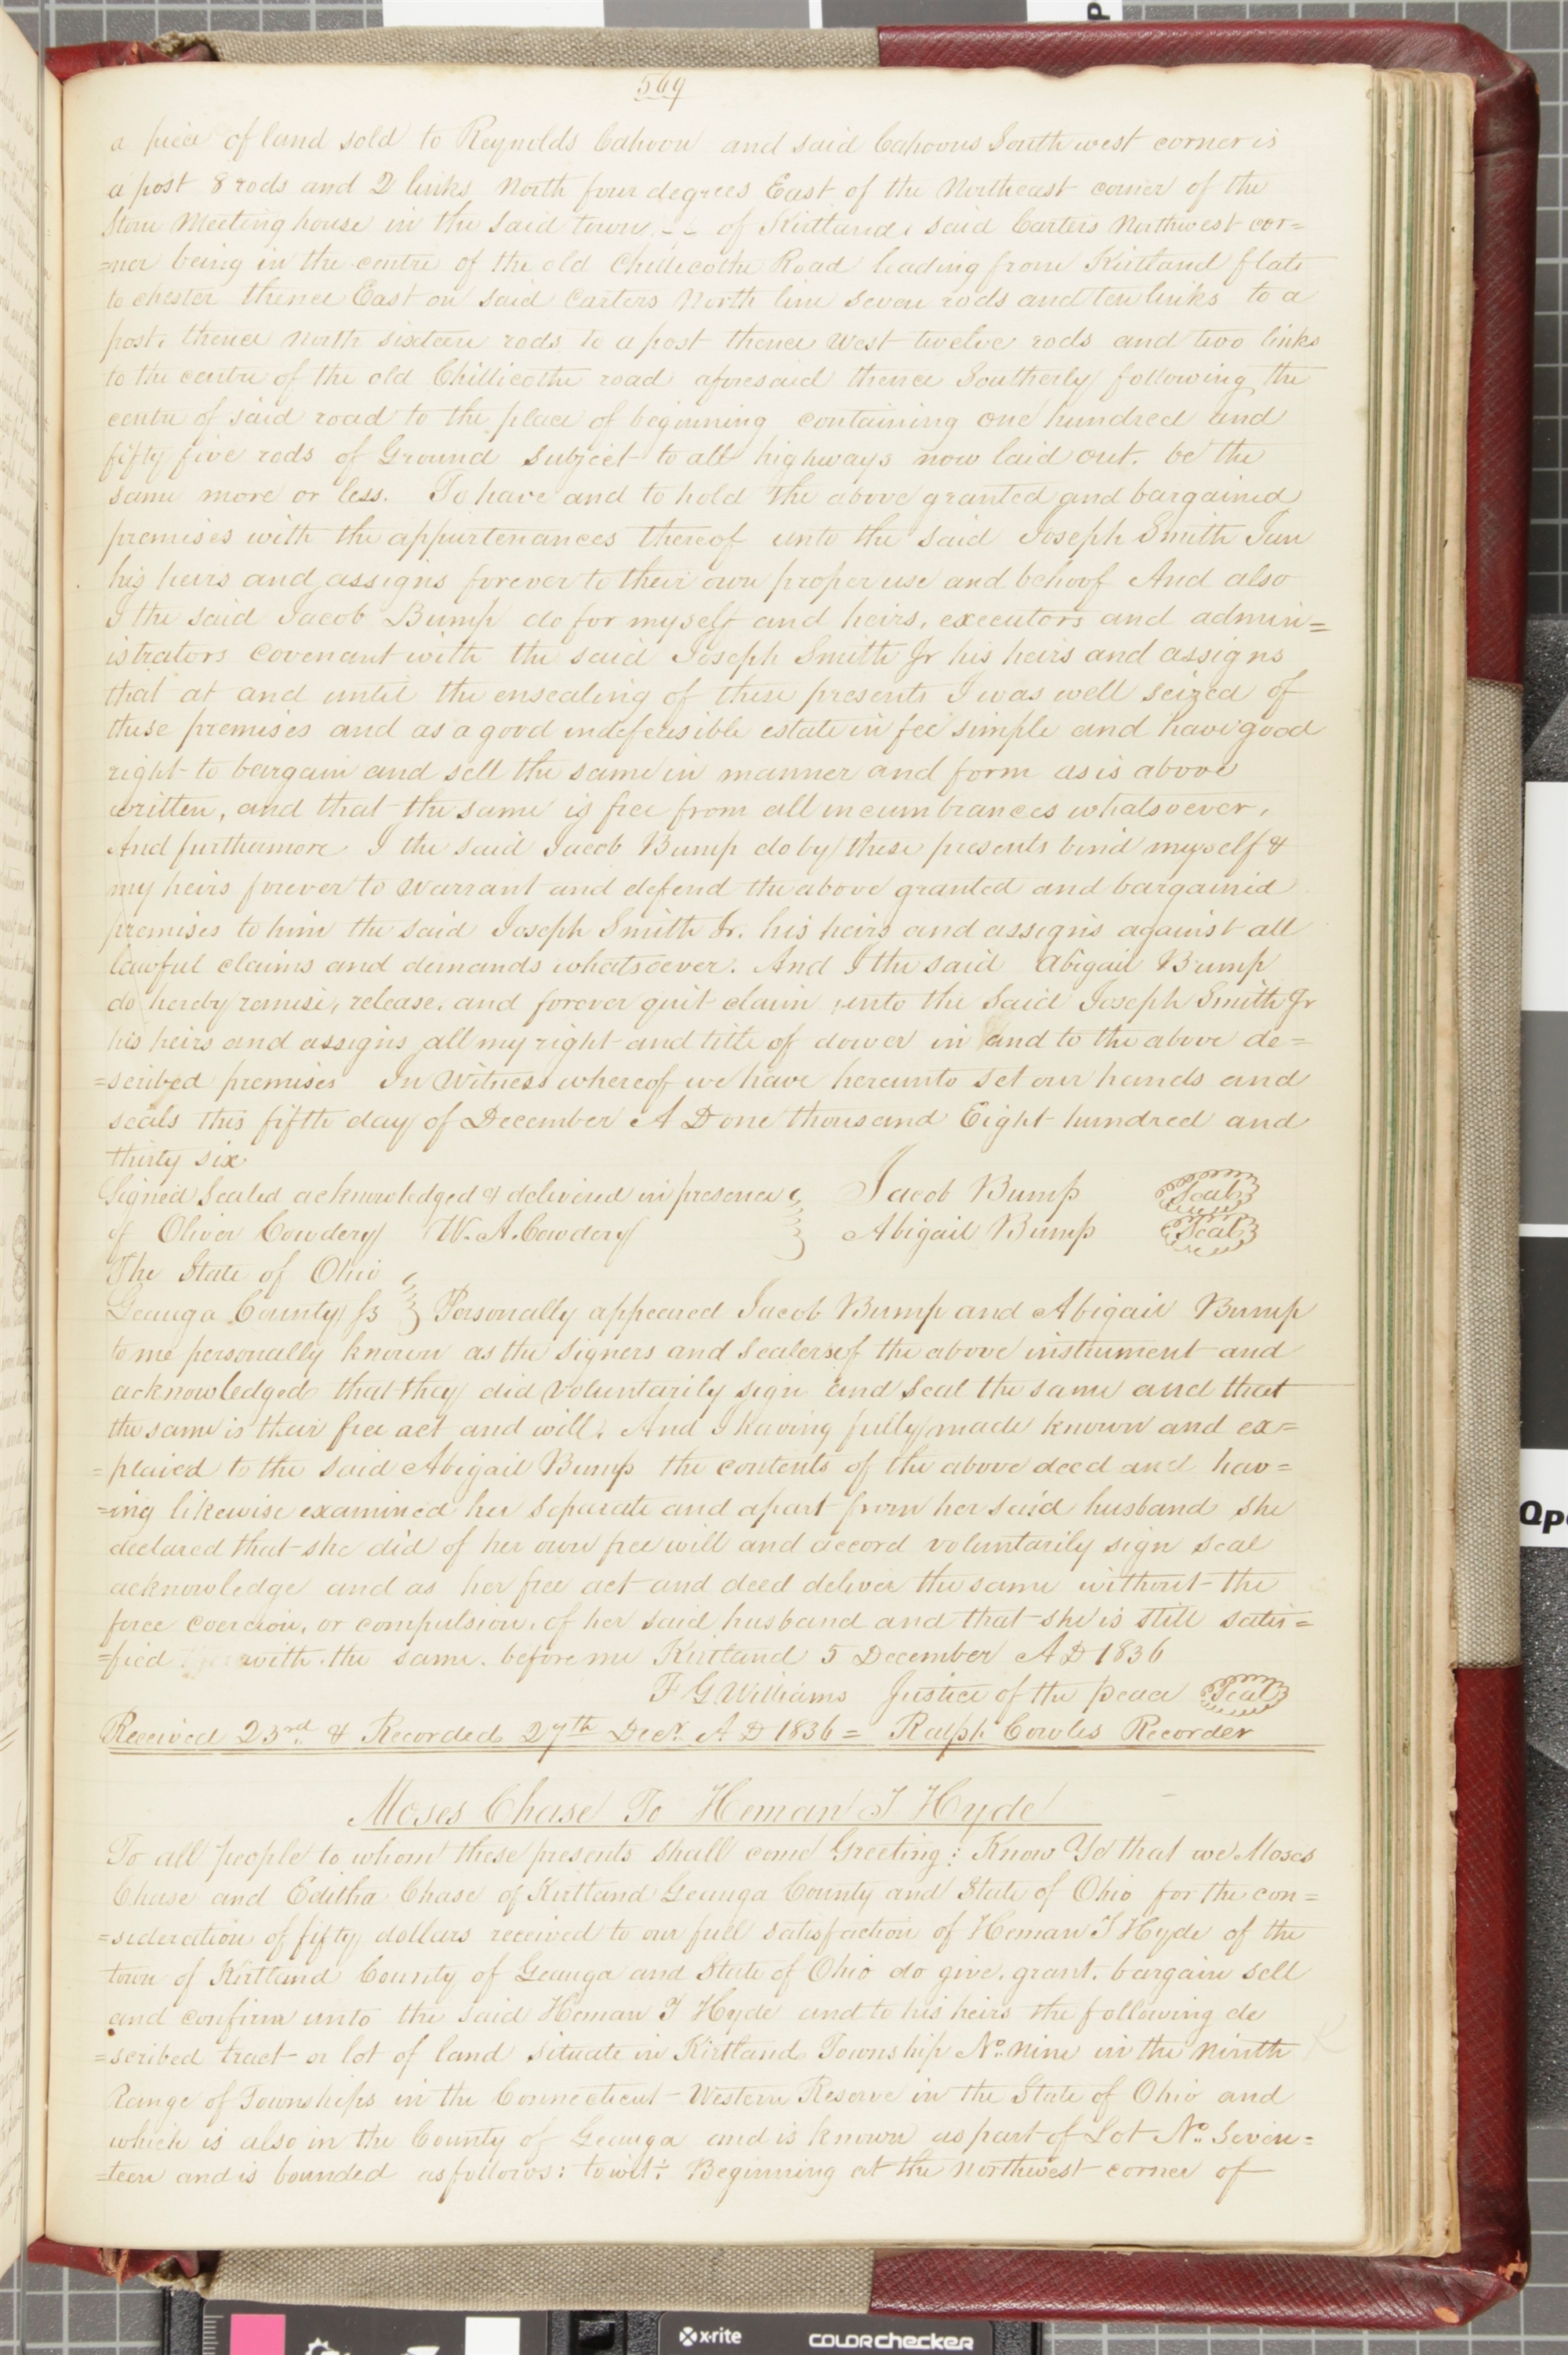 569
a piece of land sold to Reynolds Cahoon and said Cahoons South west corner is
a post 8 rods and 2 links North four degrees East of the Northeast corner of the
Stone Meeting house in the said town - - of Kirtland, said Carters Northwest cor=
=ner being in the centre of the old Chillicothe Road leading from Kirtland flats
to chester thence East on said Carters North line seven rods and ten links to a
post, thence North sixteen rods to a post thence West twelve rods and two links
to the centre of the old Chillicothe road aforesaid thence Southerly following the
centre of said road to the place of beginning containing one hundred and
fifty five rods of Ground subject to all highways now laid out. be the
same more or less. To have and to hold the above granted and bargained
premises with the appurtenances thereof unto the said Joseph Smith Jun
his heirs and assigns forever to their own proper use and behoof And also
I the said Jacob Bump do for myself and heirs, executors and admin=
istrators covenant with the said Joseph Smith Jr his heirs and assigns
that at and until the ensealing of these presents I was well seized of
these premises and as a good indefeasible estate in fee simple and have good
right to bargain and sell the same in manner and form as is above
written, and that the same is free from all incumbrances whatsoever,
And furthermore I the said Jacob Bump do by these presents bind myself &
my heirs forever to Warrant and defend the above granted and bargained
premises to him the said Joseph Smith Jr. his heirs and assigns against all
lawful claims and demands whatsoever. And I the said Abigail Bump
do hereby remise, release, and forever quit claim unto the said Joseph Smith Jr
his heirs and assigns all my right and title of dower in and to the above de=
=scribed premises In Witness whereof we have hereunto set our hands and
seals this fifth day of December A D one thousand Eight hundred and
thirty six
Signed Sealed acknowledged & delivered in presence } Jacob Bump Seal
of Oliver Cowdery W. A. Cowdery } Abigail Bump Seal
The State of Ohio }
Geauga County ss } Personally appeared Jacob Bump and Abigail Bump
to me personally known as the signers and sealers of the above instrument and
acknowledged that they did voluntarily sign and seal the same and that
the same is their free act and will. And I having fully made known and ex=
=plaied to the said Abigail Bump the contents of the above deed and hav=
=ing likewise examined her separate and apart from her said husband she
declared that she did of her own free will and accord voluntarily sign seal
acknowledge and as her free act and deed deliver the same without the
force coercion, or compulsion, of her said husband and that she is still satis=
=fied with the same. before me Kirtland 5 December A D 1836
F G Williams Justice of the peace Seal
Received 23rd. & Recorded 27th Decr. A D 1836 = Ralph Cowles Recorder
Moses Chase To Heman T Hyde
To all people to whom these presents shall come Greeting: Know Ye that we Moses
Chase and Editha Chase of Kirtland Geauga County and State of Ohio for the con=
=sideration of fifty dollars received to our full satisfaction of Heman T Hyde of the
town of Kirtland County of Geauga and State of Ohio do give, grant, bargain sell
and confirm unto the said Heman T Hyde and to his heirs the following de
=scribed tract or lot of land situate in Kirtland Township No. nine in the ninth
Range of Townships in the Connecticut Western Reserve in the State of Ohio and
which is also in the County of Geauga and is known as part of Lot No. Seven=
=teen and is bounded as follows: towit: Beginning at the Northwest corner of
x-rite
colorchecker